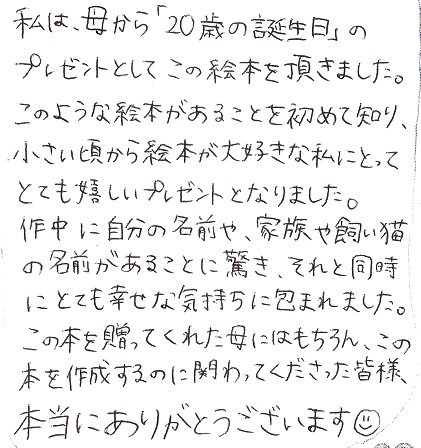 私は、母から「20歳の誕生日」の
プレゼントとしてこの絵本を頂きました。
このような絵本があることを初めて知り、
小さい頃から絵本が大好きな私にとって
とても嬉しいプレゼントとなりました。
作中に自分の名前や、家族や飼い猫
の名前があることに驚き、それと同時
にとても幸せな気持ちに包まれました。
この本を贈ってくれた母にはもちろん、この
本を作成するのに関わってくださった皆様、
本当にありがとうございます☺